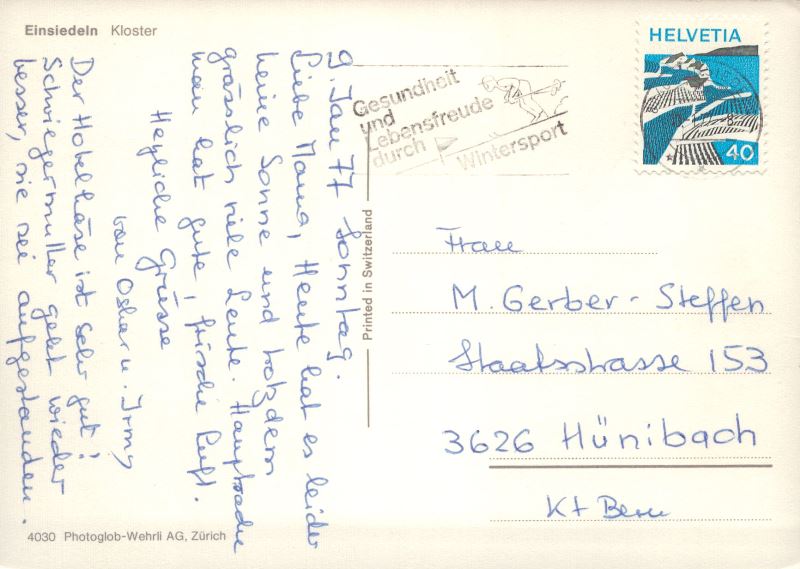 Einsiedeln Kloster
9. Jan 77 Sonntag.
Liebe Mama, Heute hat es leider
keine Sonne und trotzdem
grässlich viele Leute. Hauptsache
man hat gute, frische Luft.
Herzliche Grüsse
von Oskar u. Irmy
Der Hotelkäse ist sehr gut!
Schwiegermutter geht wieder
besser, sie sei aufgestanden.
4030 Photoglob-Wehrli AG, Zürich
Printed in Switzerland
Gesundheit
und
Lebensfreude
durch
Wintersport
HELVETIA
40
Frau
M. Gerber-Steffen
Staatsstrasse 153
3626 Hünibach
Kt Bern